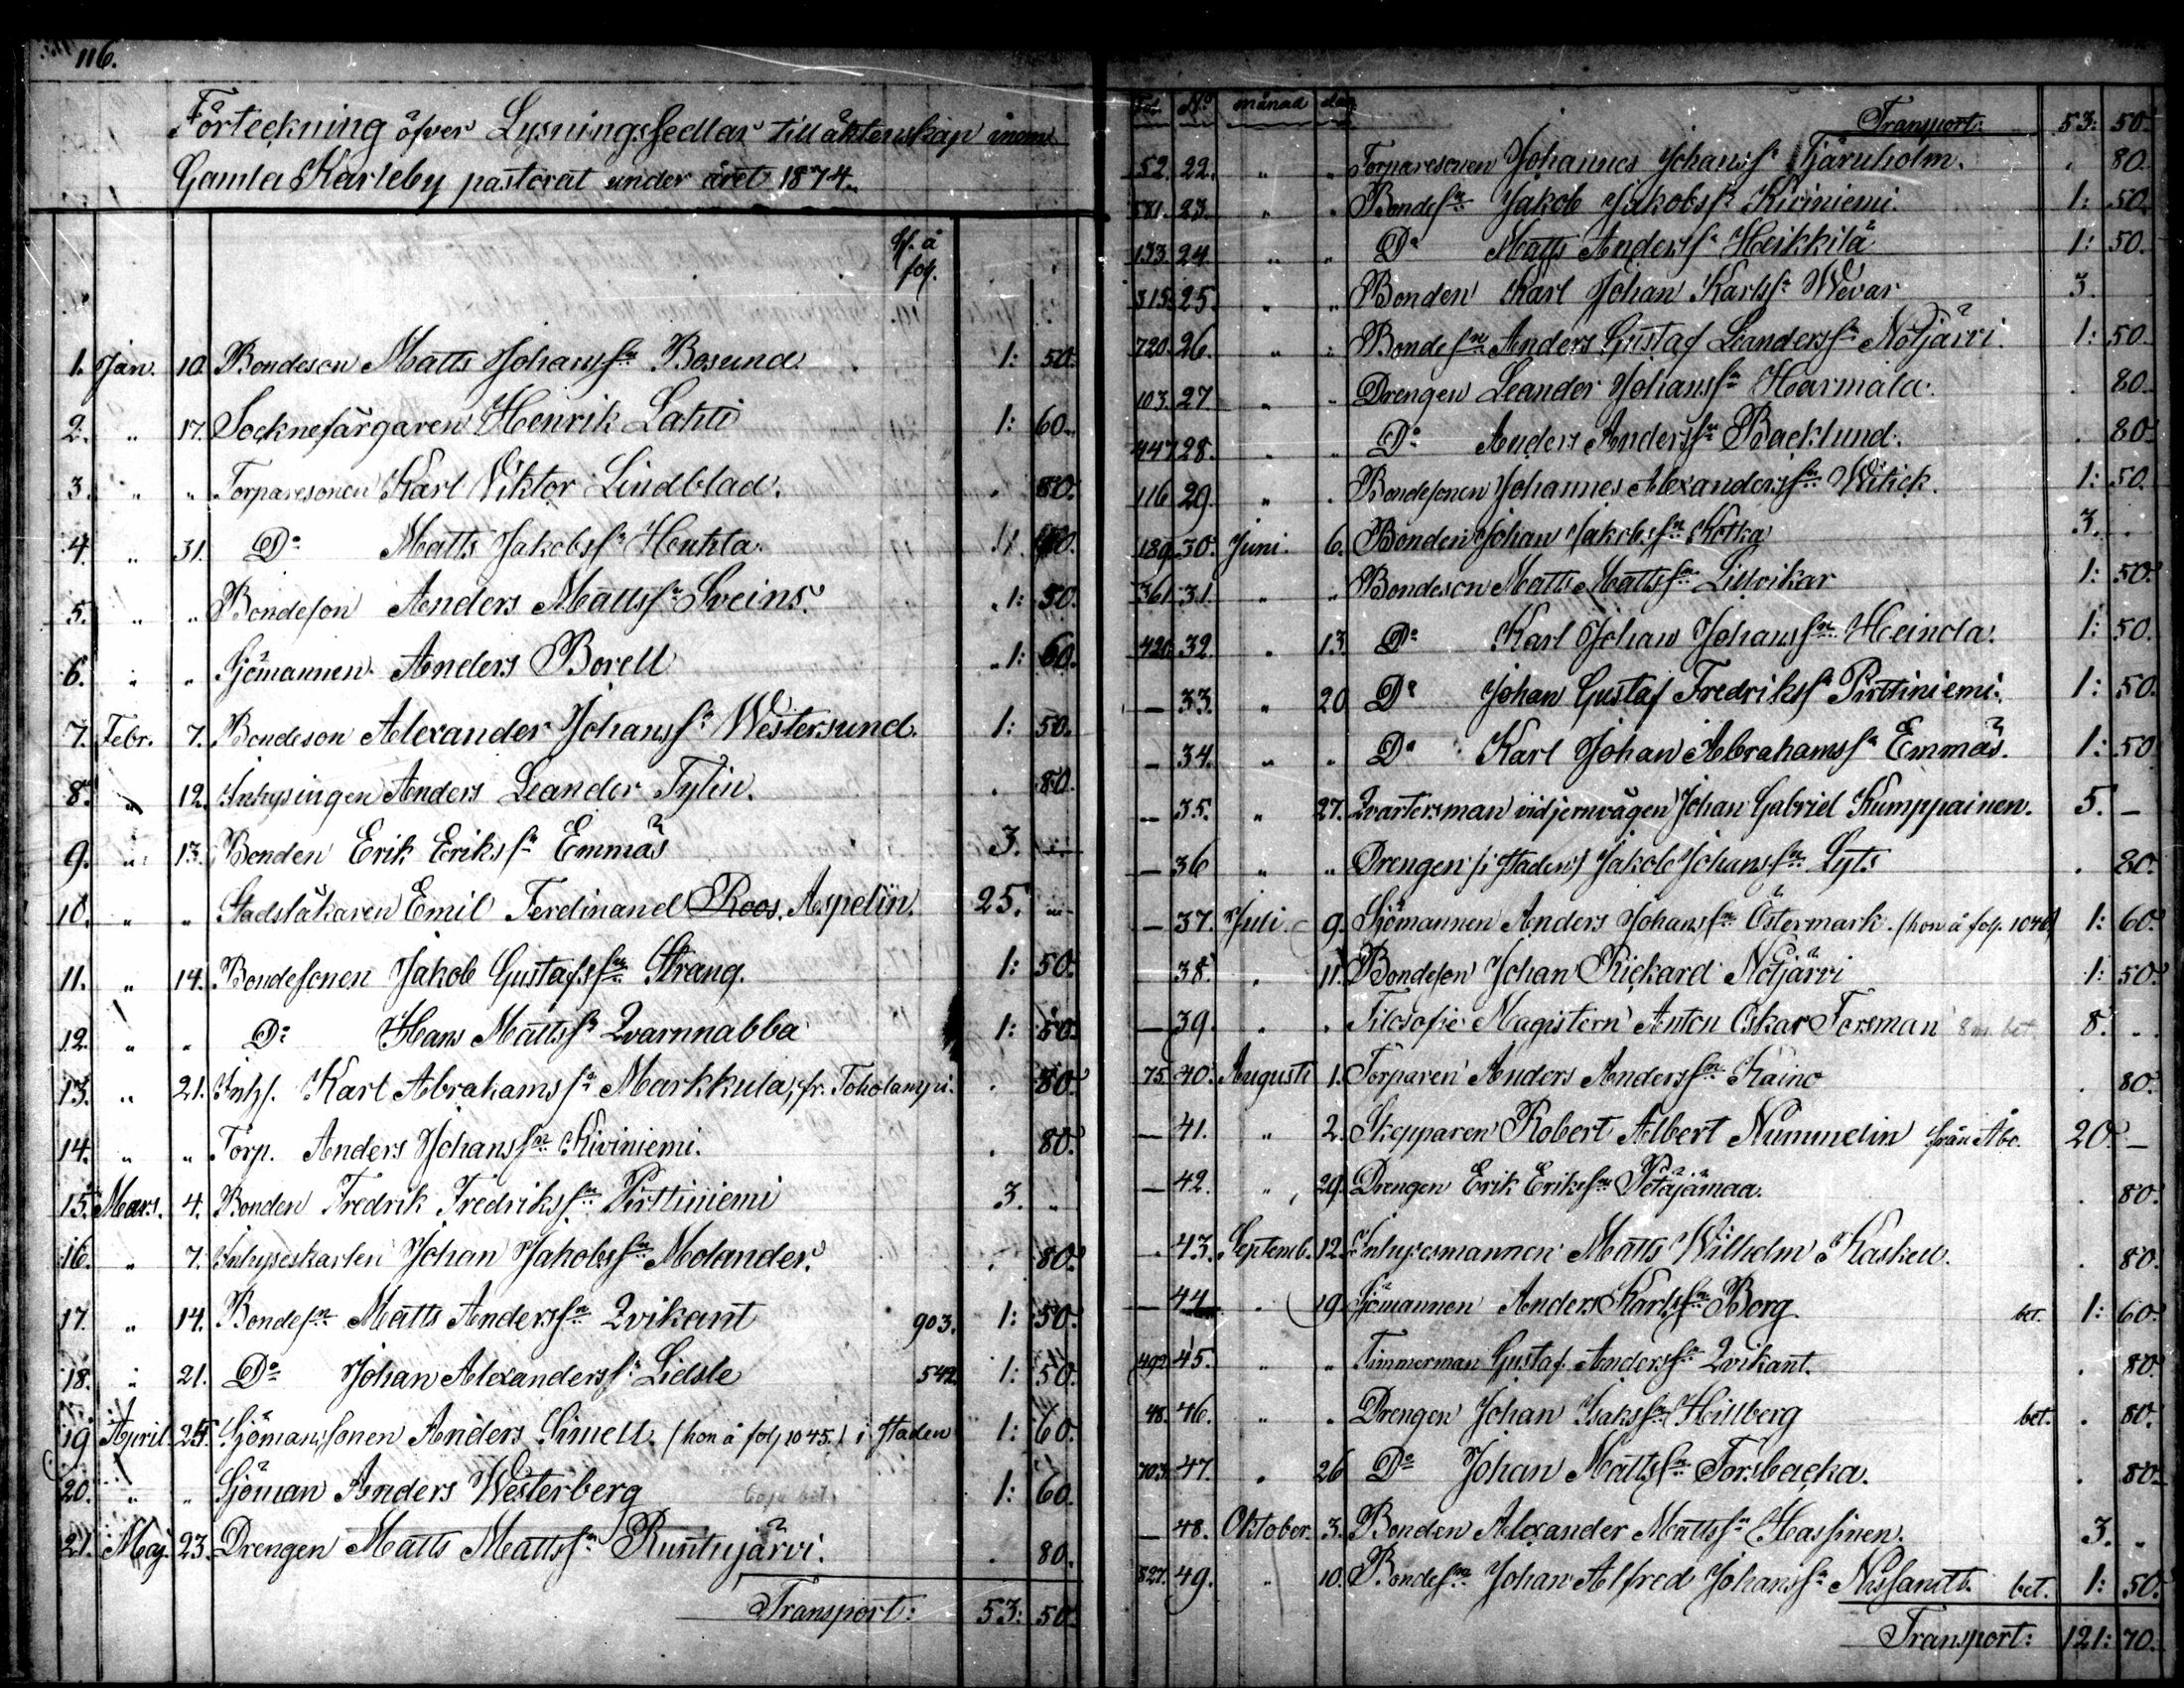 116.
Förteckning öfver Lysningssedlar till äktenskap inom
Gamla Karleby pastorat under året 1874.
å fol.
1. Jan. 10. Bondeson Matts Johansson Bosund. 1: 50.
2. " 17. Socknefärgaren Henrik Lahti 1: 60.
3. " " Torparesonen Karl Viktor Lindblad. . 80.
4. " 31. Do Matts Jakobsn Honkla.
5. " " Bondeson Anders Mattssn Sveins. 1: 50.
6. " " Sjömannen Anders Borell 1: 60.
7. Febr. 7. Bondeson Alexander Johanssn Westersund. 1: 50.
8. " 12. Inhysingen Anders Leander Tylin. . 80.
9. " 13. Bonden Erik Erikssn Emmäs 3. "
10. " " Stadsläkaren Emil Ferdinand Roos. Aspelin. 25. "
11. " 14. Bondesonen Jakob Gustafssn Strang. 1: 50.
12. " " Do Hans Mattssn Qvarnnabba 1: 50.
13. " 21. Inhs. Karl Abrahamssn Markkula, fr. Toholampi. . 80.
14. " " Torp. Anders Johanssn Kiviniemi. . 80.
15. Mars. 4. Bonden Fredrik Fredrikssn Pirttiniemi 3. "
16. " 7. Inhyseskarlen Johan Jakobssn Molander. . 80.
17. " 14. Bondesn Matts Anderssn Qvikant 903. 1: 50.
18. " 21. Do Johan Alexanderssn Lidsle 542. 1: 50.
19. April 25. Sjömanssonen Anders Simell. (hon å fol. 1045.) i staden 1: 60.
20. " " Sjöman Anders Westerberg 1: 60.
21. Maj. 23. Drengen Matts Mattssn Runtujärvi. . 80.
Transport: 53: 50.
Fol. No månad dag. Transport: 53: 50.
52. 22. " " Torparesonen Johannes Johanssn Tjärnholm. . 80.
581. 23. " " Bondesn Jakob Jakobssn Kiviniemi. 1: 50.
133. 24. " " Do Matts Anderssn Heikkilä 1: 50.
315. 25. " " Bonden Karl Johan Karlssn Wevar 3.
720. 26. " " Bondesn Anders Gustaf Leanderssn Nötjärvi. 1: 50.
103. 27. " " Drengen Leander Johanssn Harmala. . 80.
447. 28. " " Do Anders Anderssn Backlund. . 80.
116. 29. " " Bondesonen Johannes Alexanderssn Witick. 1: 50.
189. 30. Juni. 6. Bonden Johan Jakobssn Kotka 3. .
361. 31. " " Bondeson Matts Mattssn Lillvikar 1: 50.
420. 32. " 13. Do Karl Johan Johanssn Heinola. 1: 50.
— 33. " 20. Do Johan Gustaf Fredrikssn Pirttiniemi. 1: 50.
— 34. " " Do Karl Johan Abrahamssn Emmäs. 1: 50
— 35. " 27. Qvartersman vid jernvägen Johan Gabriel Kumppainen. 5. —
— 36 " " Drengen (i staden) Jakob Johanssn Lyts . 80.
— 37. Juli 9. Sjömannen Anders Johanssn Östermark. (hon å fol. 1046) 1: 60.
38. . 11. Bondeson Johan Rickard Nötjärvi 1: 50.
— 39. " . Filosofie Magistern Anton Oskar Forsman 8 m. bet. 8. . .
75. 40. Augusti 1. Torparen Anders Anderssn Kaino . 80.
— 41. " 2. Skepparen Robert Albert Nummelin från Åbo. 20. —
— 42. " 29. Drengen Erik Erikssn Petäjämaa. . 80.
. 43. Septemb. 12. Inhysesmannen Matts Wilhelm Kaskeu. . 80.
— 44. . 19. Sjömannen Anders Karlssn Borg bet. 1: 60.
492. 45. " " Timmerman Gustaf Anderssn Qvikant. . 80.
48. 46. " . Drengen Johan Isakssn Hillberg bet. . 80.
703. 47. " 26 Do Johan Mattssn Forsbacka. . 80.
— 48. Oktober. 3. Bonden Alexander Mattssn Hassinen. 3. "
827. 49. " 10. Bondesn Johan Alfred Johanssn Nissandt. bet. 1: 50.
Transport: 121: 70.